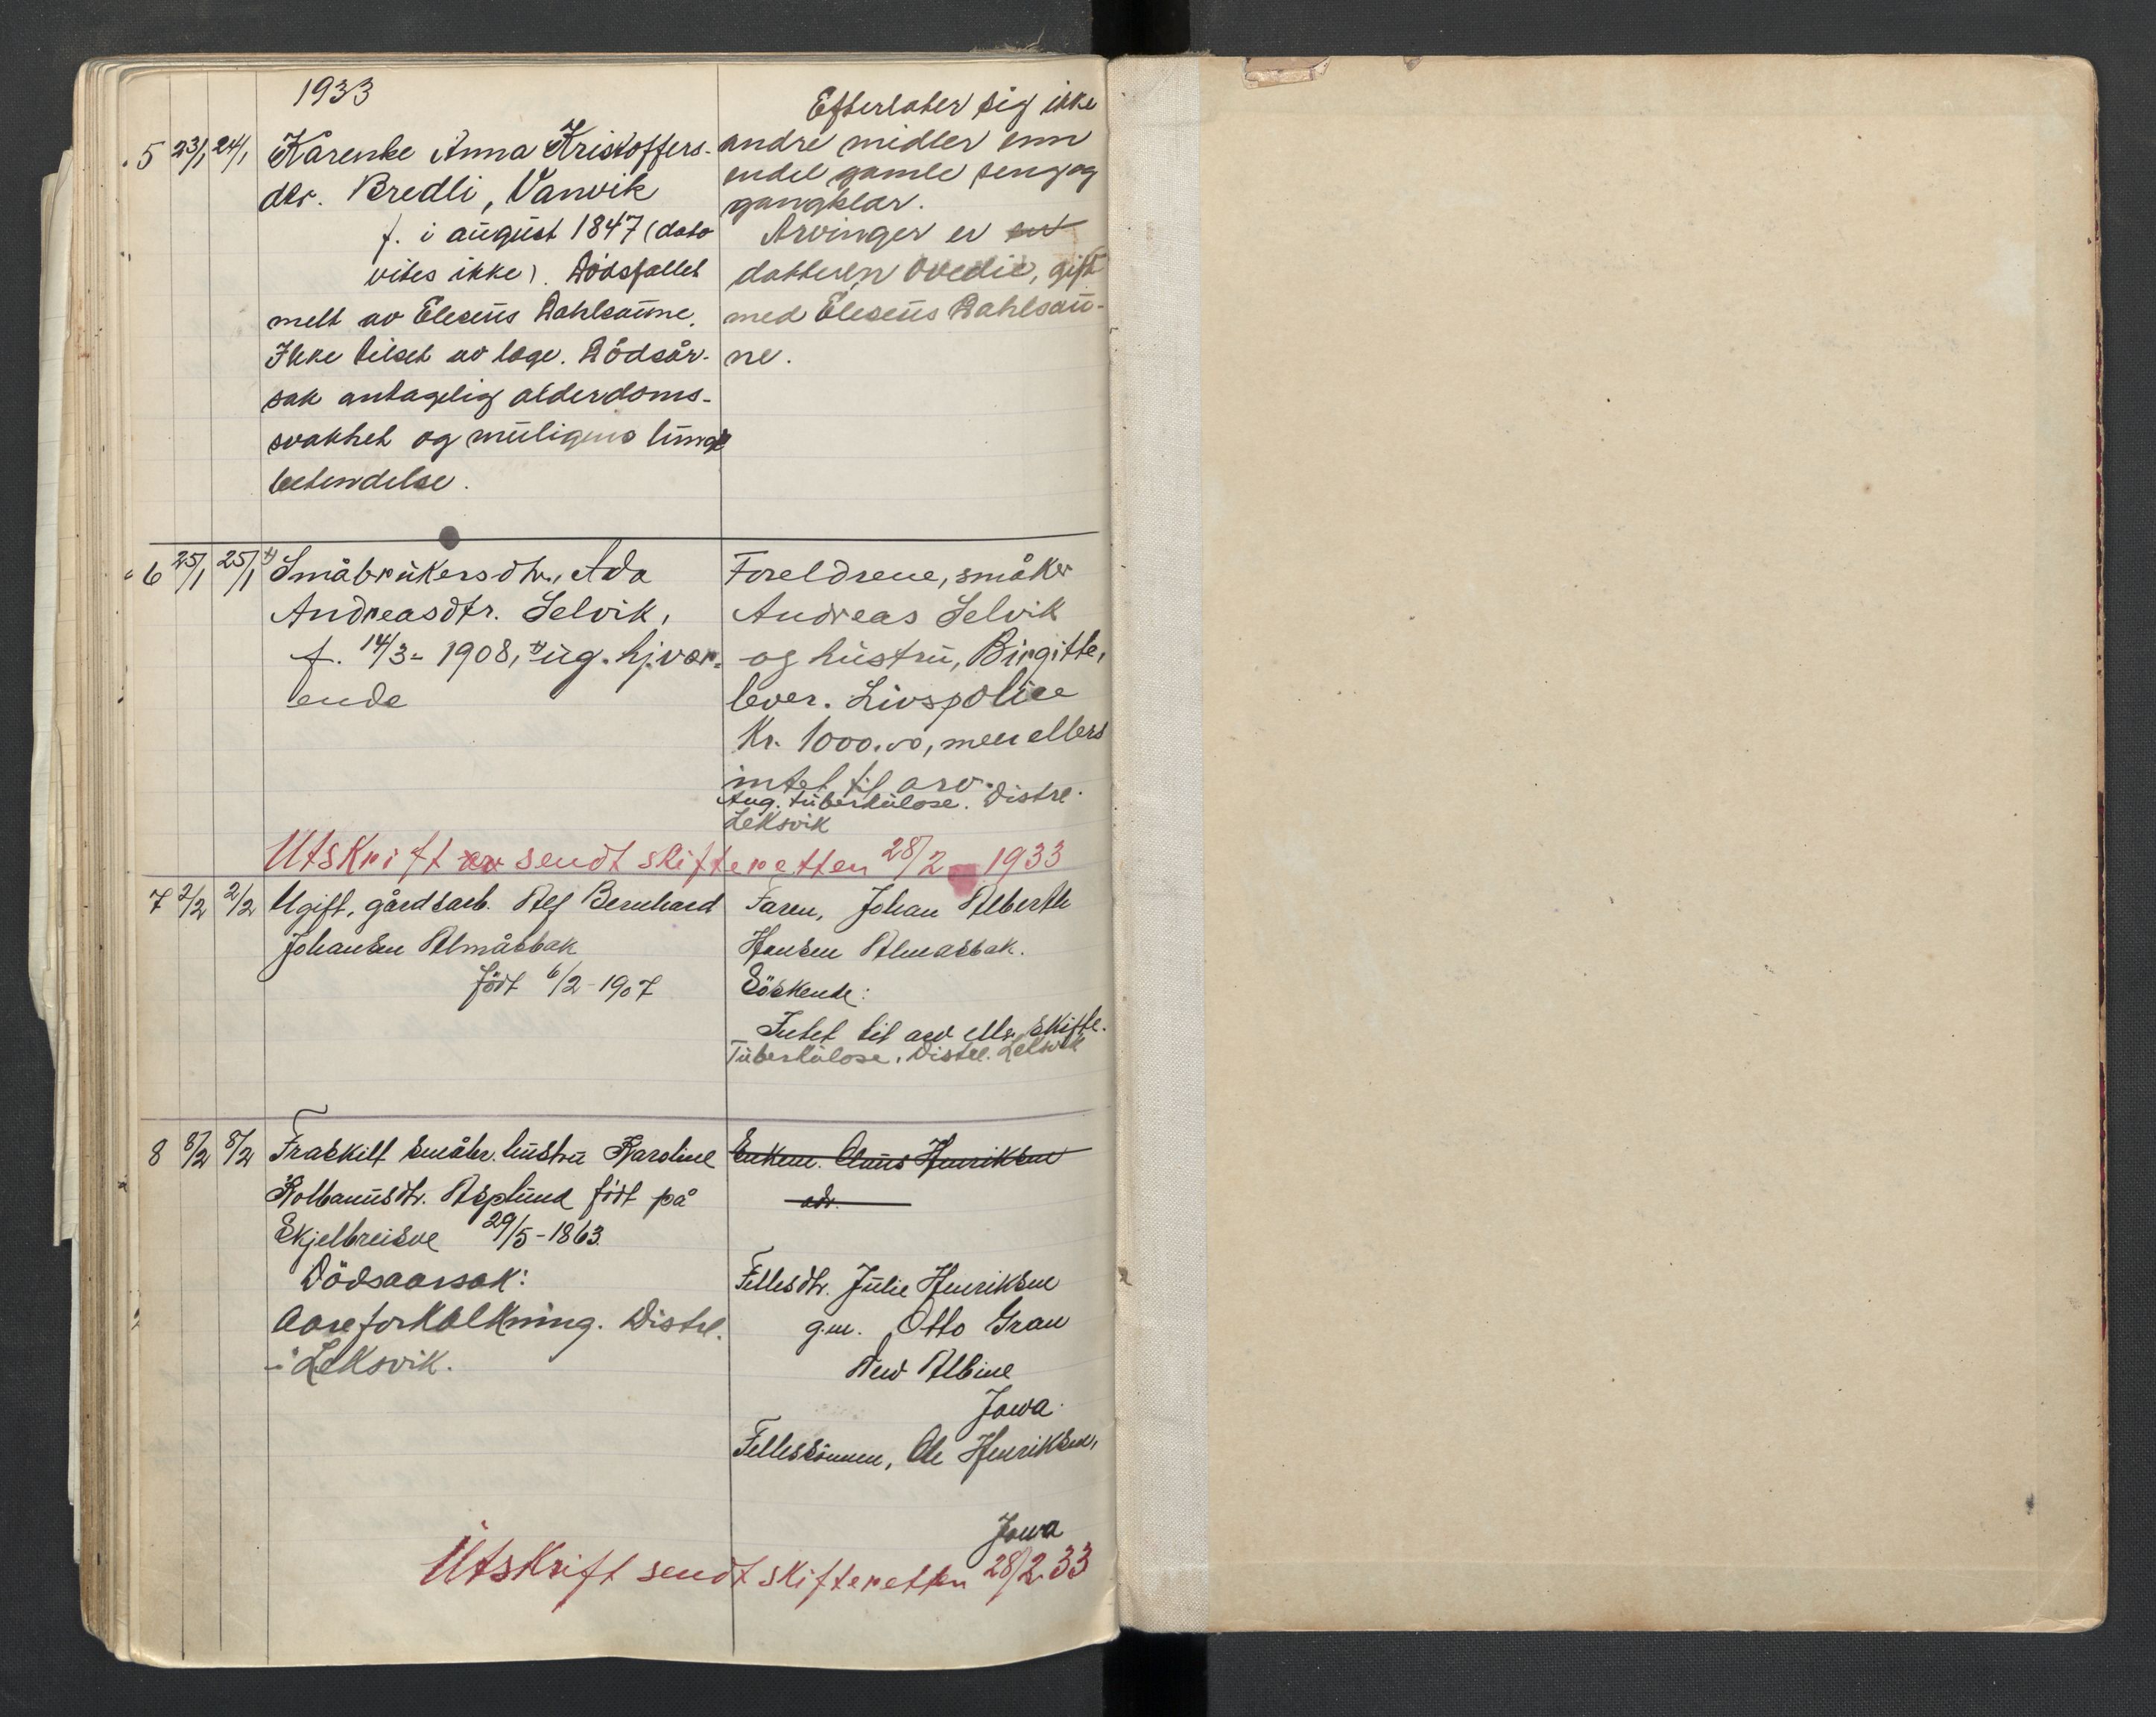 1933
5 23/1 24/1 Kårenke Anna Kristoffers-
dtr. Bredli, Vanvik
f. i august 1847 (dato
vites ikke). Dödsfallet
melt av Eleseus Dahlsaune.
Ikke tilset av læge. Dödsår-
sak antagelig alderdoms-
svakhet og muligens lunge
betendelse.
Efterlater sig ikke
andre midler enn
endel gamle seng og
gangklær.
Arvinger er en
datteren Ovedie, gift
med Eleseus Dahlsau-
ne.
6 25/1 25/1 Småbrukersdtr., Ada
Andreasdtr. Selvik,
f. 14/3 - 1908, ug. hj.vær-
ende
Foreldrene, småker
Andreas Selvik
og hustru, Birgitte,
lever. Livspolice
Kr. 1000.00, men ellers
intet til arv.
Ang. tuberkulose. Distrl.
Leksvik
Utskrift av sendt skifteretten 28/2 1933
7 2/2 2/2 Ugift, gårdsarb. Alf Bernhard
Johansen Almåsbak
Född 6/2 - 1907
Faren, Johan Alberth
Hansen Almasbak.
Söskende:
Intet til arv ell. skifte.
Tuberkulose. Distrl. Leksvik
8 8/2 8/2 Fraskilt småbr. hustru Karoline
Kolbanusdtr. Asplund födt på
Skjelbreisve 29/5 - 1863.
Dödsaarsak:
Aareforkalkning. Distrl.
i Leksvik.
Enkem. Claus Henriksen
adr.
Fellesdtr. Julie Henriksen
g.m. Otto Gran
New Albine
Jowa
Fellessönnen, Ole Henriksen,
Jowa
Utskrift sendt skifteretten 28/2 33